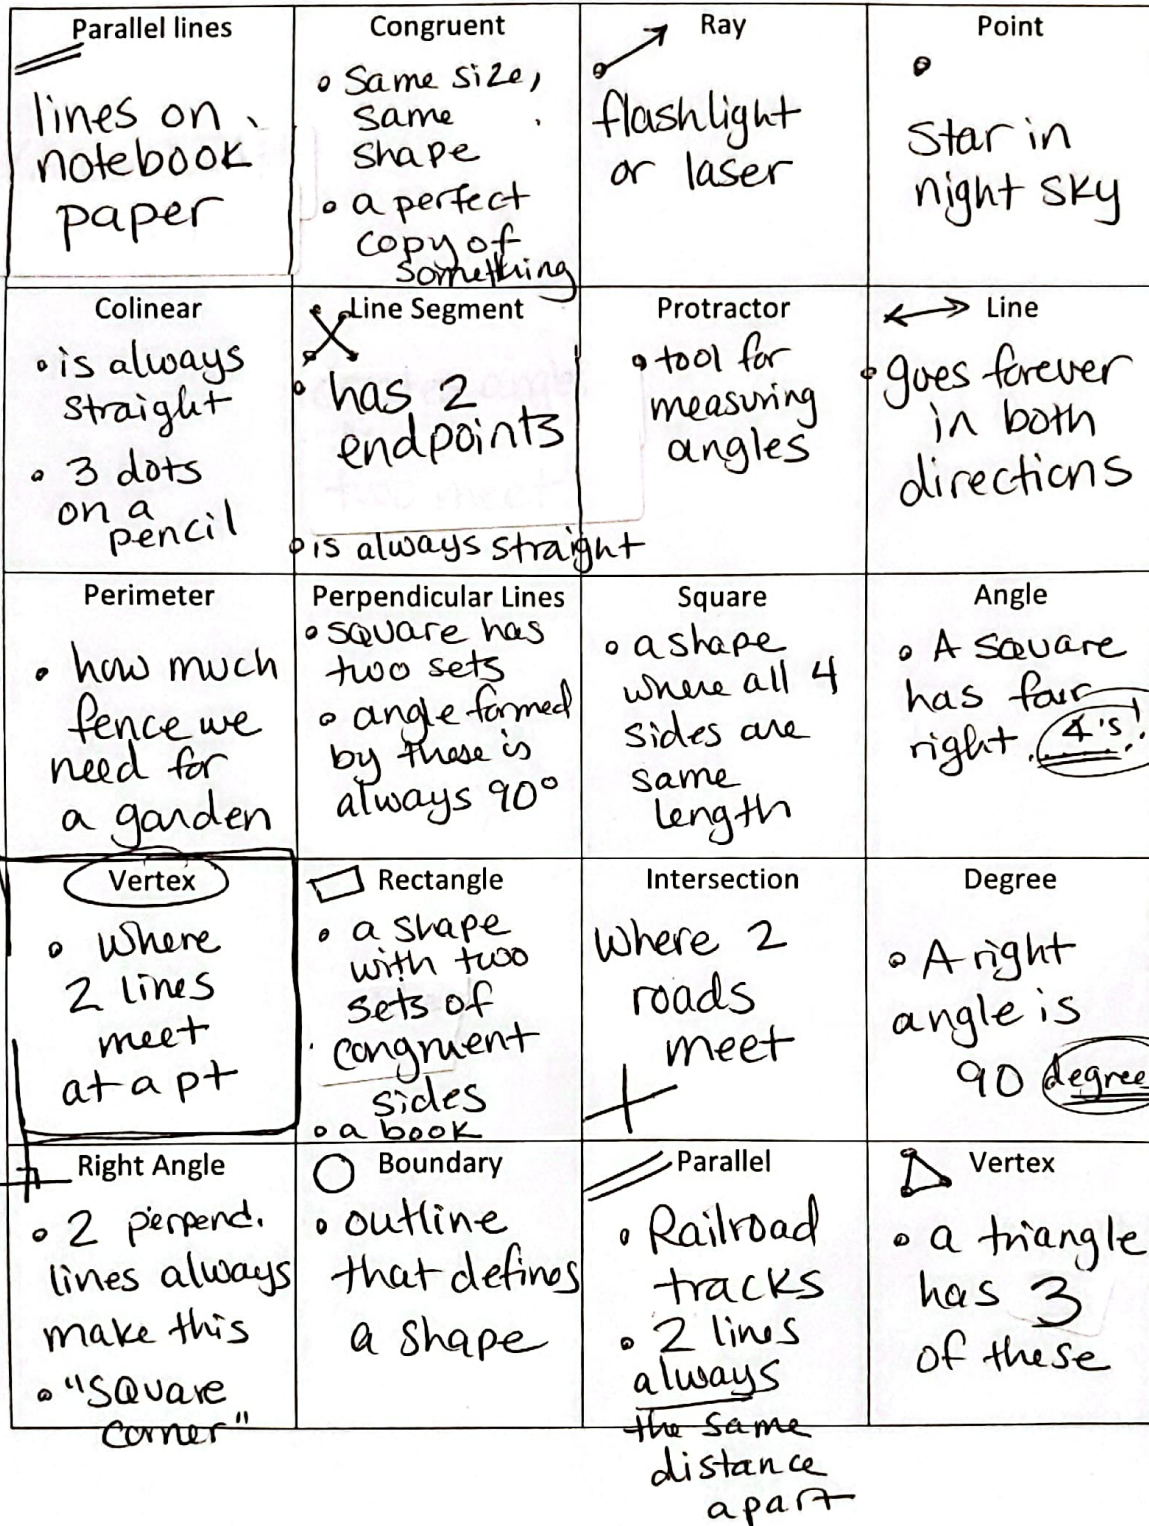 Parallel lines
lines on
notebook
paper
Congruent
same size,
same
shape
a perfect
copy of
something
Ray
flashlight
or laser
Point
star in
night sky
Colinear
is always
straight
3 dots
on a
pencil
Line Segment
has 2
endpoints
is always straight
Protractor
tool for
measuring
angles
Line
goes forever
in both
directions
Perimeter
how much
fence we
need for
a garden
Perpendicular Lines
square has
two sets
angle formed
by these is
always 90°
Square
a shape
where all 4
sides are
same
length
Angle
A square
has four
right
Vertex
where
2 lines
meet
at a pt
Rectangle
a shape
with two
sets of
congruent
sides
a book
Intersection
where 2
roads
meet
Degree
A right
angle is
90 degree
Right Angle
2 perpend.
lines always
make this
"square
corner"
Boundary
outline
that defines
a shape
Parallel
Railroad
tracks
2 lines
always
the same
distance
apart
Vertex
a triangle
has 3
of these